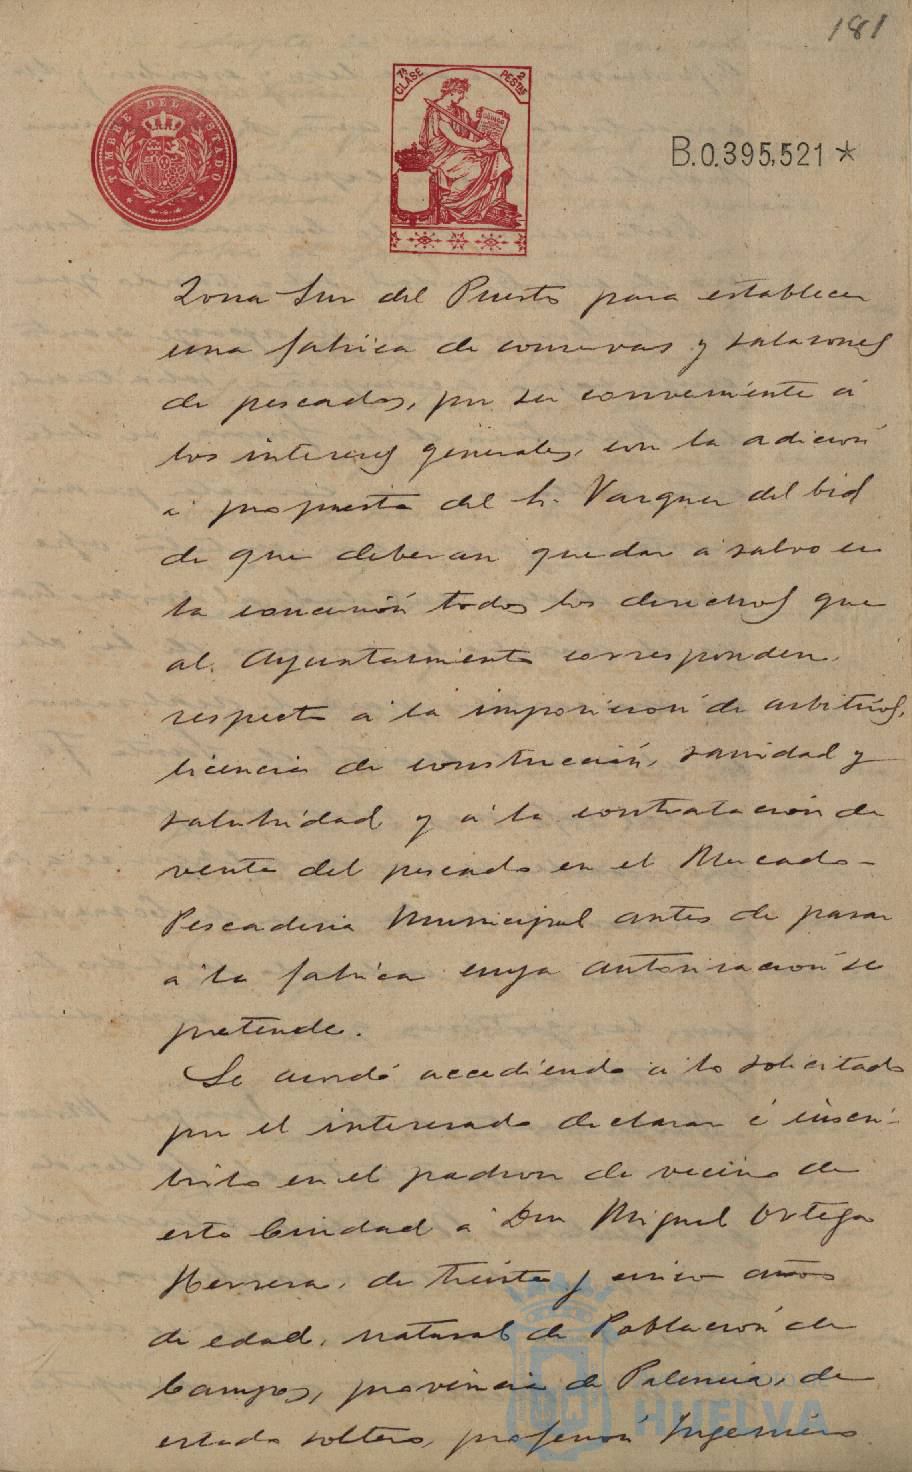 181
TIMBRE DEL ESTADO
7ª CLASE
2 PESTAS
B.0.395,521 *
Zona Sur del Puerto para establecer
una fabrica de conservas y salazones
de pescados, por ser conveniente á
los intereses generales, con la adicion
á propuesta del Sr. Vazquez del Cid
de que deberan quedar á salvo en
la concesión todos los derechos que
al Ayuntamiento corresponden
respecto á la imposición de arbitrios,
licencia de construcción, sanidad y
salubridad y á la contratacion de
venta del pescado en el Mercado-
Pescaderia Municipal antes de pasar
á la fabrica cuya autorizacion se
pretende.
Se acordó accediendo á lo solicitado
por el interesado declarar é inscri-
birlo en el padron de vecino de
esta Ciudad á Don Miguel Ortega
Herrera, de treinta y cinco años
de edad, natural de Población de
Campos, provincia de Palencia, de
estado soltero, profesión Ingeniero
HUELVA